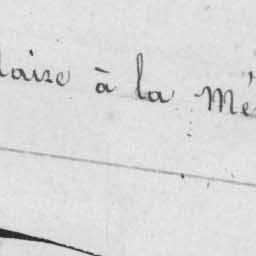 laire à la Mé